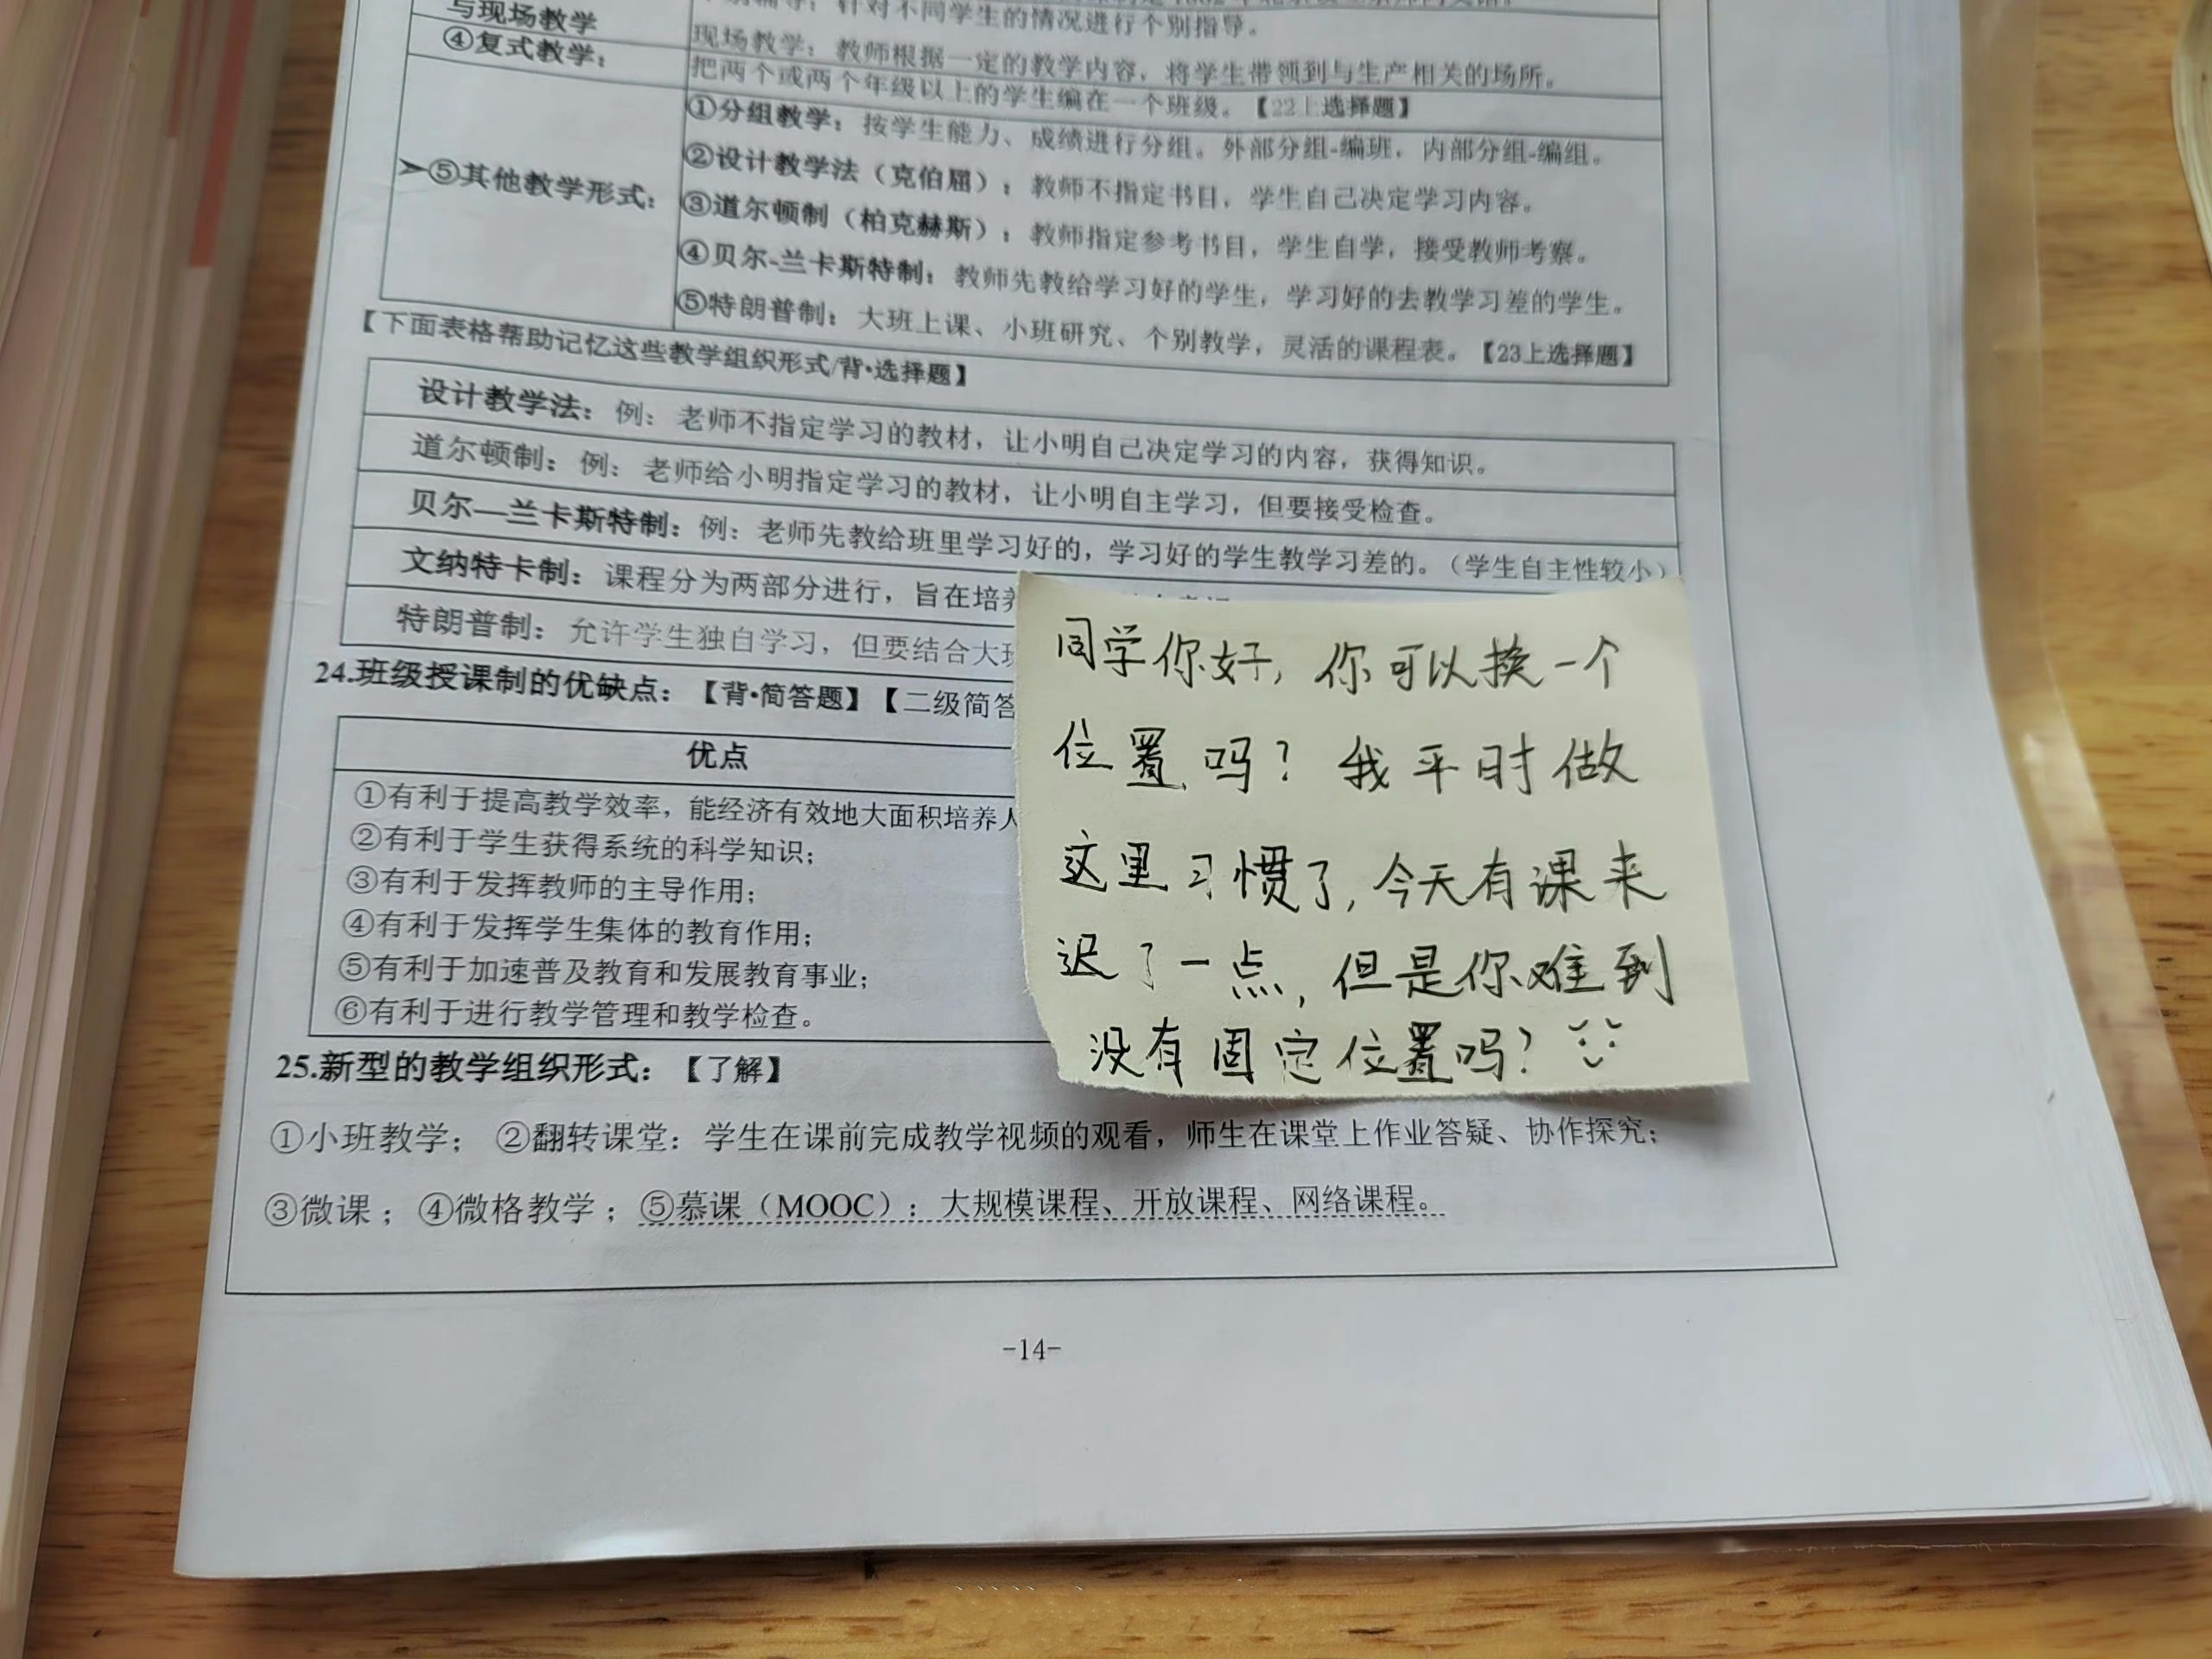 与现场教学
针对不同学生的情况进行个别指导。
④复式教学：
现场教学：教师根据一定的教学内容，将学生带领到与生产相关的场所。
把两个或两个年级以上的学生编在一个班级。【22上选择题】
➢⑤其他教学形式：
①分组教学：按学生能力、成绩进行分组。外部分组-编班，内部分组-编组。
②设计教学法（克伯屈）：教师不指定书目，学生自己决定学习内容。
③道尔顿制（柏克赫斯）：教师指定参考书目，学生自学，接受教师考察。
④贝尔-兰卡斯特制：教师先教给学习好的学生，学习好的去教学习差的学生。
⑤特朗普制：大班上课、小班研究、个别教学，灵活的课程表。【23上选择题】
【下面表格帮助记忆这些教学组织形式/背•选择题】
设计教学法：例：老师不指定学习的教材，让小明自己决定学习的内容，获得知识。
道尔顿制：例：老师给小明指定学习的教材，让小明自主学习，但要接受检查。
贝尔—兰卡斯特制：例：老师先教给班里学习好的，学习好的学生教学习差的。（学生自主性较小）
文纳特卡制：课程分为两部分进行，旨在培养
特朗普制：允许学生独自学习，但要结合大班
24.班级授课制的优缺点：【背•简答题】【二级简答
优点
①有利于提高教学效率，能经济有效地大面积培养人
②有利于学生获得系统的科学知识；
③有利于发挥教师的主导作用；
④有利于发挥学生集体的教育作用；
⑤有利于加速普及教育和发展教育事业；
⑥有利于进行教学管理和教学检查。
同学你好，你可以换一个
位置吗？我平时做
这里习惯了，今天有课来
迟了一点，但是你难到
没有固定位置吗？
25.新型的教学组织形式：【了解】
①小班教学； ②翻转课堂：学生在课前完成教学视频的观看，师生在课堂上作业答疑、协作探究；
③微课；④微格教学；⑤慕课（MOOC）：大规模课程、开放课程、网络课程。
-14-